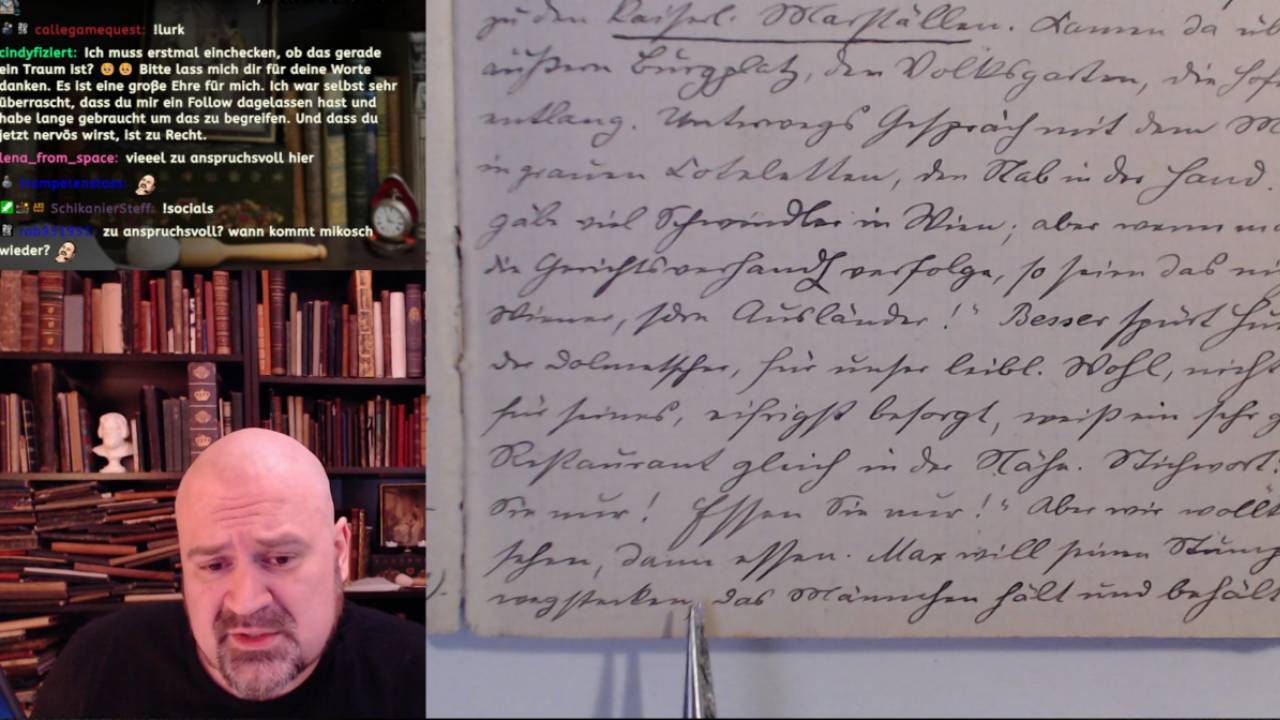 callegamequest: !lurk
cindyfiziert: Ich muss erstmal einchecken, ob das gerade
ein Traum ist? Bitte lass mich dir für deine Worte
danken. Es ist eine große Ehre für mich. Ich war selbst sehr
überrascht, dass du mir ein Follow dagelassen hast und
habe lange gebraucht um das zu begreifen. Und dass du
jetzt nervös wirst, ist zu Recht.
lena_from_space: vieeel zu anspruchsvoll hier
trompetenstoss:
SchikanierSteff: !socials
zu anspruchsvoll? wann kommt mikosch
wieder?
zu den Kaiserl. Marställen. Kamen da
äußern Burgplatz, den Volksgarten, die
entlang. Unterwegs Gespräch mit dem
in grauen Koteletten, den Stab in der Hand.
gäbe viel Schwindler in Wien; aber wenn
die Gerichtsverhandl verfolge, so seien das
Wiener, sdrn Ausländer!" Besser spürt
der Dolmetscher, für unser leibl. Wohl, nicht
für seines, eifrigst besorgt, weiß ein sehr
Restaurant gleich in der Nähe. Stichwort:
Sie nur! Essen Sie nur!" Aber wir
sehen, dann essen. Max will seinen
wegstecken, das Männchen hält und behält